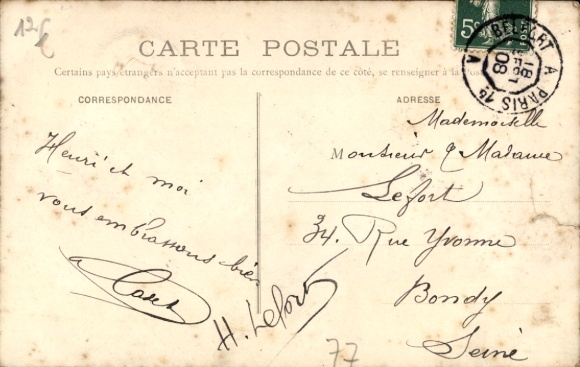 12f
5c
BELFORT A PARIS 1°
18
08
A
CARTE POSTALE
Certains pays étrangers n'acceptant pas la correspondance de ce côté, se renseigner à la Poste
CORRESPONDANCE
ADRESSE
Henri et moi
vous embrassons bien
H. Lefort
Mademoiselle
Monsieur & Madame
Lefort
34. Rue Yvonne
Bondy
Seine
77